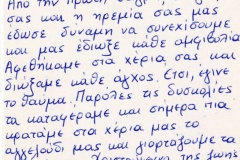 Από την πρώτη
σας και η ηρεμία σας μας
έδωσε δύναμη να συνεχίσουμε
και μας έδιωξε κάθε αμφιβολία
Αφεθήκαμε στα χέρια σας και
διώξαμε κάθε άγχος. Έτσι, έγινε
το θαύμα. Παρόλες τις δυσκολίες
τα καταφέραμε και σήμερα πια
κρατάμε στα χέρια μας το
αγγελούδι μας και γιορτάζουμε τα
της ζωής